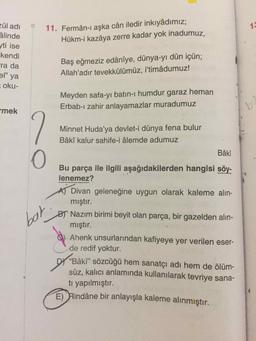 zül adı
âlinde
yti ise
kendi
ra da
el" ya
oku-
rmek
11. Fermân-ı aşka cân iledir inkıyâdımız;
Hükm-i kazâya zerre kadar yok inadımuz,
Baş eğmeziz edânîye, dünya-yı dûn içün;
Allah'adır tevekkülümüz, i'timâdumuz!
Meyden safa-yı batın-ı humdur garaz heman
Erbab-ı zahir anlayamazlar muradumuz
Minnet Huda'ya devlet-i dünya fena bulur
Bâkî kalur sahife-i âlemde adumuz
Bâkî
?
Bu parça ile ilgili aşağıdakilerden hangisi söy-
lenemez?
A) Divan geleneğine uygun olarak kaleme alın-
mıştır.
B) Nazım birimi beyit olan parça, bir gazelden alın-
mıştır.
C) Ahenk unsurlarından kafiyeye yer verilen eser-
de redif yoktur.
D) "Bâkî" sözcüğü hem sanatçı adı hem de ölüm-
süz, kalıcı anlamında kullanılarak tevriye sana-
tı yapılmıştır.
E) Rindâne bir anlayışla kaleme alınmıştır.